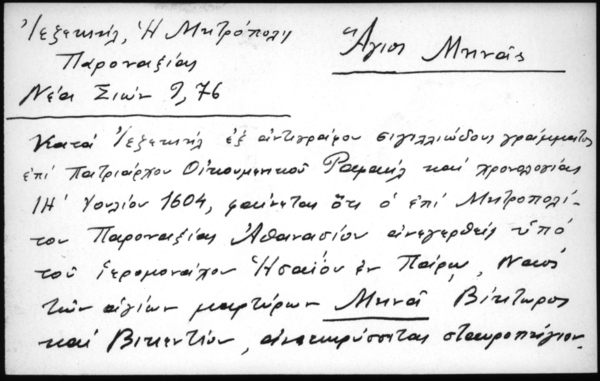 Ἰεζεκιήλ, Ἡ Μητρόπολις
Παροναξίας
Νέα Σιών 9, 76
Ἅγιος Μηνᾶς
Κατά Ἰεζεκιήλ ἐξ ἀντιγράφου σιγιλλιώδους γράμματος
ἐπί Πατριάρχου Οἰκουμενικοῦ Ραφαήλ καί χρονολογίας
Ἰουλίου 1604, φαίνεται ὅτι ὁ ἐπί Μητροπολί-
του Παροναξίας Ἀθανασίου ἀνεγερθείς ὑπό
τοῦ ἱερομονάχου Ἡσαΐου ἐν Πάρῳ, Ναός
τῶν ἁγίων μαρτύρων Μηνᾶ Βίκτωρος
καί Βικεντίου, ἀνακηρύσσεται σταυροπήγιον.